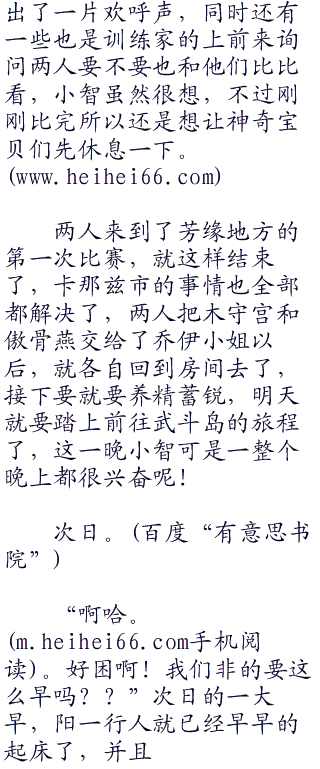 出了一片欢呼声，同时还有
一些也是训练家的上前来询
问两人要不要也和他们比比
看，小智虽然很想，不过刚
刚比完所以还是想让神奇宝
贝们先休息一下。
(www.heihei66.com)
两人来到了芳缘地方的
第一次比赛，就这样结束
了，卡那兹市的事情也全部
都解决了，两人把木守宫和
傲骨燕交给了乔伊小姐以
后，就各自回到房间去了，
接下要就要养精蓄锐，明天
就要踏上前往武斗岛的旅程
了，这一晚小智可是一整个
晚上都很兴奋呢！
次日。(百度“有意思书
院”)
“啊哈。
(m.heihei66.com手机阅
读)。好困啊！我们非的要这
么早吗？？”次日的一大
早，阳一行人就已经早早的
起床了，并且